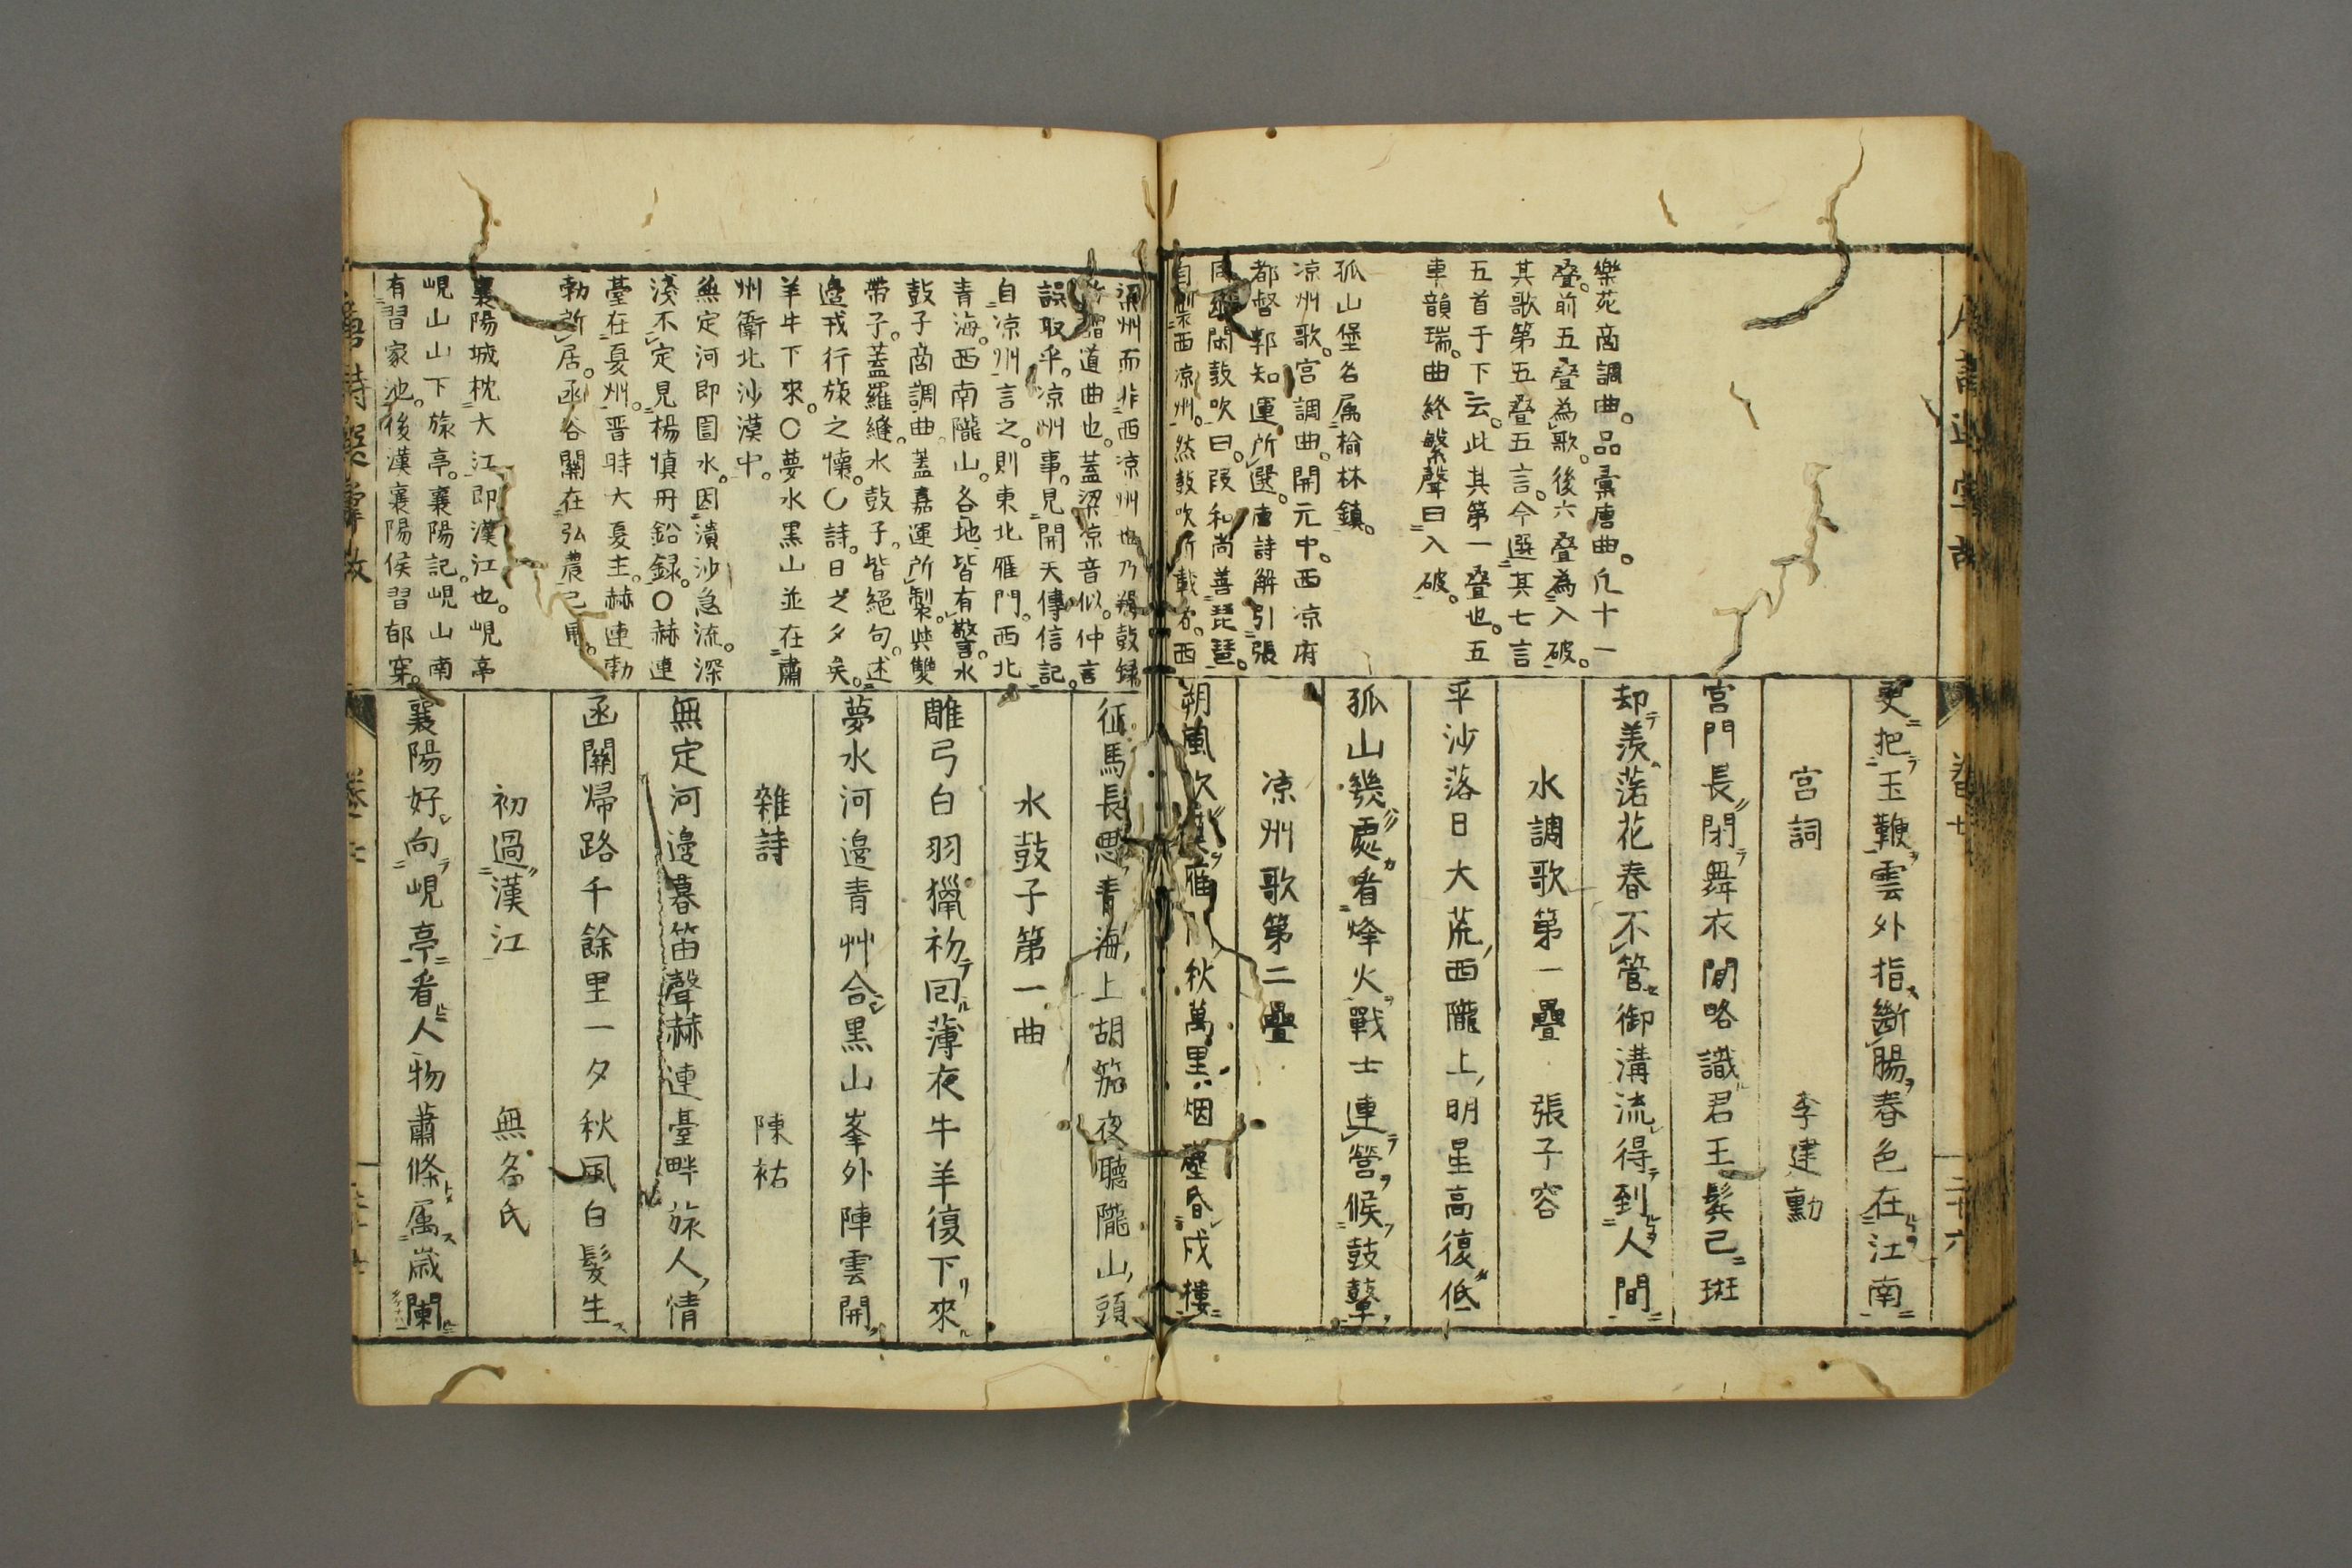 樂苑商調曲。品彙唐曲。凡十一
叠。前五叠為歌。後六叠為入破。
其歌第五叠五言。今選其七言
五首于下云。此其第一叠也。五
車韻瑞。曲終繁聲曰入破。
孤山堡名属榆林鎮。
凉州歌。宮調曲。開元中。西凉府
都督郭知運。所選。唐詩解引張
同閑鼓吹曰。段和尚善琵琶。
自製西凉州。然鼓吹所載名。西
更把玉鞭雲外指斷腸春色在江南
宮詞
李建勳
宮門長閉舞衣閒略識君王鬂已斑
却羡落花春不管御溝流得到人間
水調歌第一疊 張子容
平沙落日大荒西隴上明星高復低
孤山幾處看烽火戰士連營候鼓鼙
凉州歌第二疊
朔風吹雁門秋萬里烟塵昏戍樓
梁州而非西凉州也乃羯鼓錄
道曲也。蓋梁凉音似。仲言
誤取乎。凉州事。見開天傳信記。
自凉州言之。則東北雁門。西北
青海。西南隴山。各地皆有警。水
鼓子商調曲。蓋嘉運所製。與雙
帶子。蓋羅縫。水鼓子。皆絕句。述
邉戎行旅之懷。〇詩。日之夕矣。
羊牛下來。〇夢水黒山並在肅
州衞北沙漠中。
無定河即圁水。因潰沙急流。深
淺不定見楊慎丹鉛録。〇赫連
臺在夏州。晋時大夏主。赫連勃
勃所居。函谷關在弘農
襄陽城枕大江即漢江也。峴亭
峴山山下旅亭。襄陽記。峴山南
有習家池。後漢襄陽侯習郁穿。
征馬長思青海上胡笳夜聽隴山頭
水鼓子第一曲
雕弓白羽獵初囘薄夜牛羊復下來
夢水河邊青艸合黒山峯外陣雲開
雜詩
陳祐
無定河邊暮笛聲赫連臺畔旅人情
函關帰路千餘里一夕秋風白髮生
初過漢江
無名氏
襄陽好向峴亭看人物蕭條属歳闌